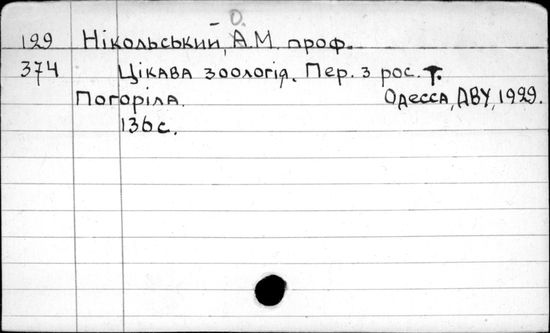 О.
129 Нікольський, А.М. проф.
374 Цікава зоологія. Пер. з рос. Т.
Погоріла. Одесса, ДВУ, 1929.
136 с.